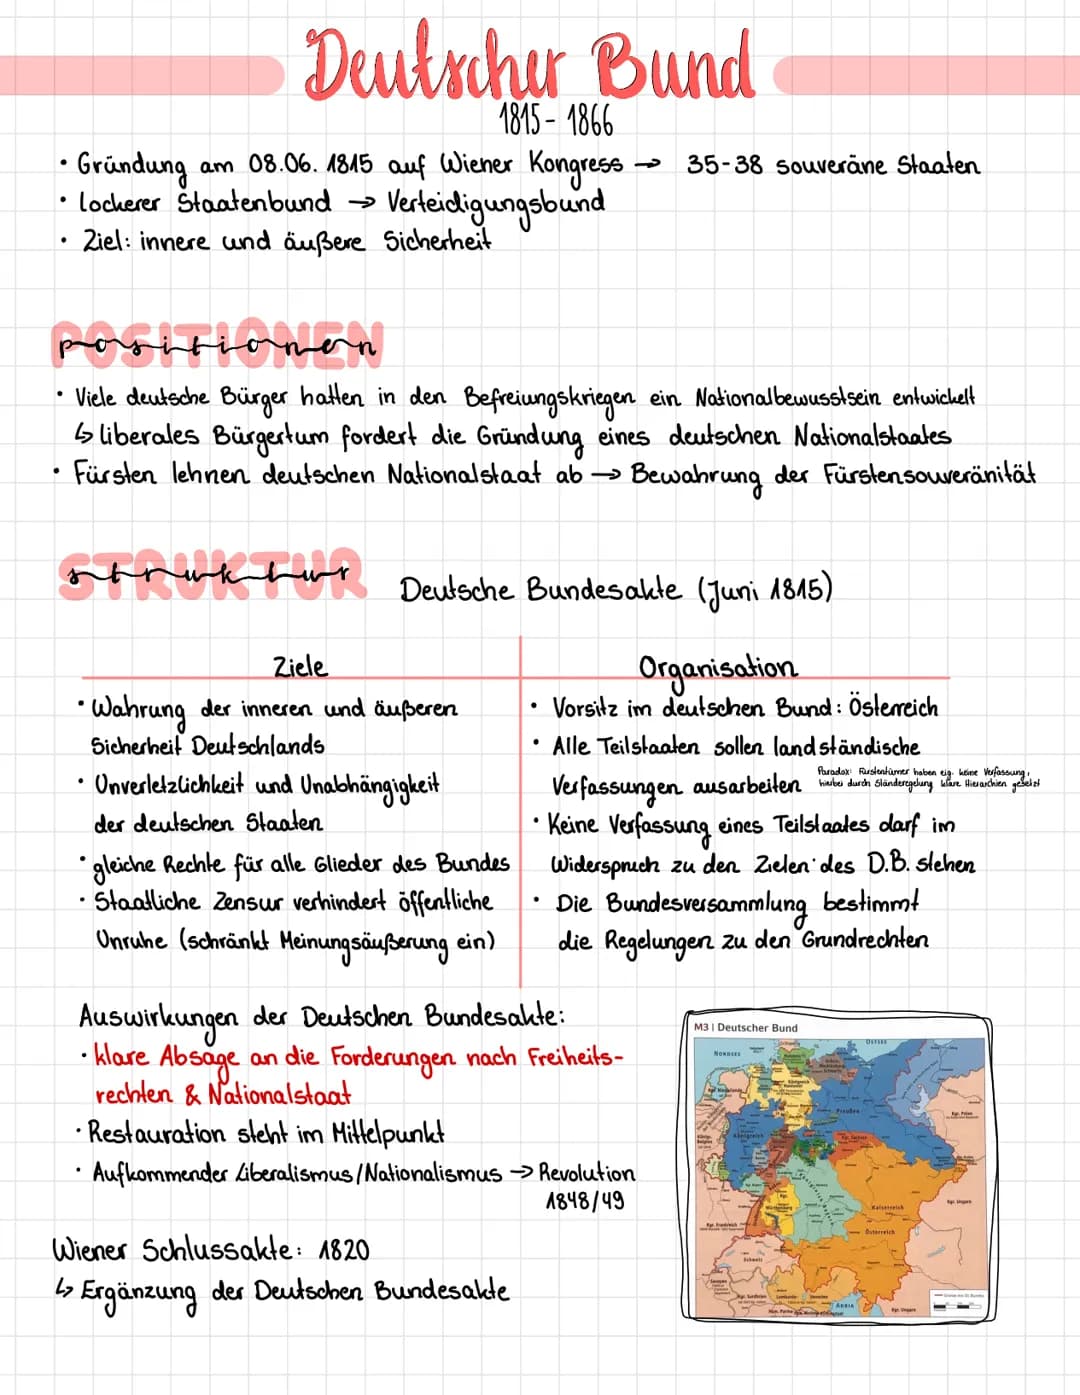 Deutscher Bund
1815 - 1866
• Gründung am 08.06. 1815 auf Wiener Kongress → 35-38 souveräne Staaten
• lockerer Staatenbund → Verteidigungsbund
• Ziel: innere und äußere Sicherheit
POSITIONEN
positionen
• Viele deutsche Bürger hatten in den Befreiungskriegen ein Nationalbewusstsein entwickelt
↳ liberales Bürgertum fordert die Gründung eines deutschen Nationalstaates
• Fürsten lehnen deutschen Nationalstaat ab → Bewahrung der Fürstensouveränität
STRUKTUR
struktur
Deutsche Bundesakte (Juni 1815)
Ziele
• Wahrung der inneren und äußeren
Sicherheit Deutschlands
• Unverletzlichkeit und Unabhängigkeit
der deutschen Staaten
• gleiche Rechte für alle Glieder des Bundes
• Staatliche Zensur verhindert öffentliche
Unruhe (schränkt Meinungsäußerung ein)
Organisation
• Vorsitz im deutschen Bund: Österreich
• Alle Teilstaaten sollen landständische
Verfassungen ausarbeiten
Paradox: Fürstentümer haben eig. keine Verfassung,
hierbei durch Ständeregelung klare Hierarchien gesetzt
• Keine Verfassung eines Teilstaates darf im
Widerspruch zu den Zielen des D.B. stehen
• Die Bundesversammlung bestimmt
die Regelungen zu den Grundrechten
Auswirkungen der Deutschen Bundesakte:
• klare Absage an die Forderungen nach Freiheits-
rechten & Nationalstaat
• Restauration steht im Mittelpunkt
• Aufkommender Liberalismus/Nationalismus → Revolution
1848/49
Wiener Schlussakte: 1820
↳ Ergänzung der Deutschen Bundesakte
M3 | Deutscher Bund
NORDSEE
OSTSEE
Preußen
Kgr. Polen
Königreich
Kgr. Sachsen
Württemberg
Kgr. Frankreich
Kaiserreich
Österreich
Kgr. Ungarn
Schweiz
Kgr. Sardinien
Lombardo-
Venetien
ADRIA
Kgr. Ungarn